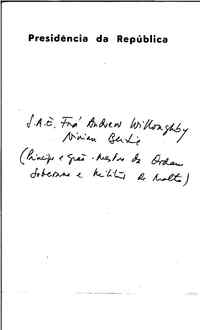 Presidência da República
S.A.E. Frá Andrew Willoughby
Ninian Bertie
(Príncipe e Grão-Mestre da Ordem
Soberana e Militar de Malta)